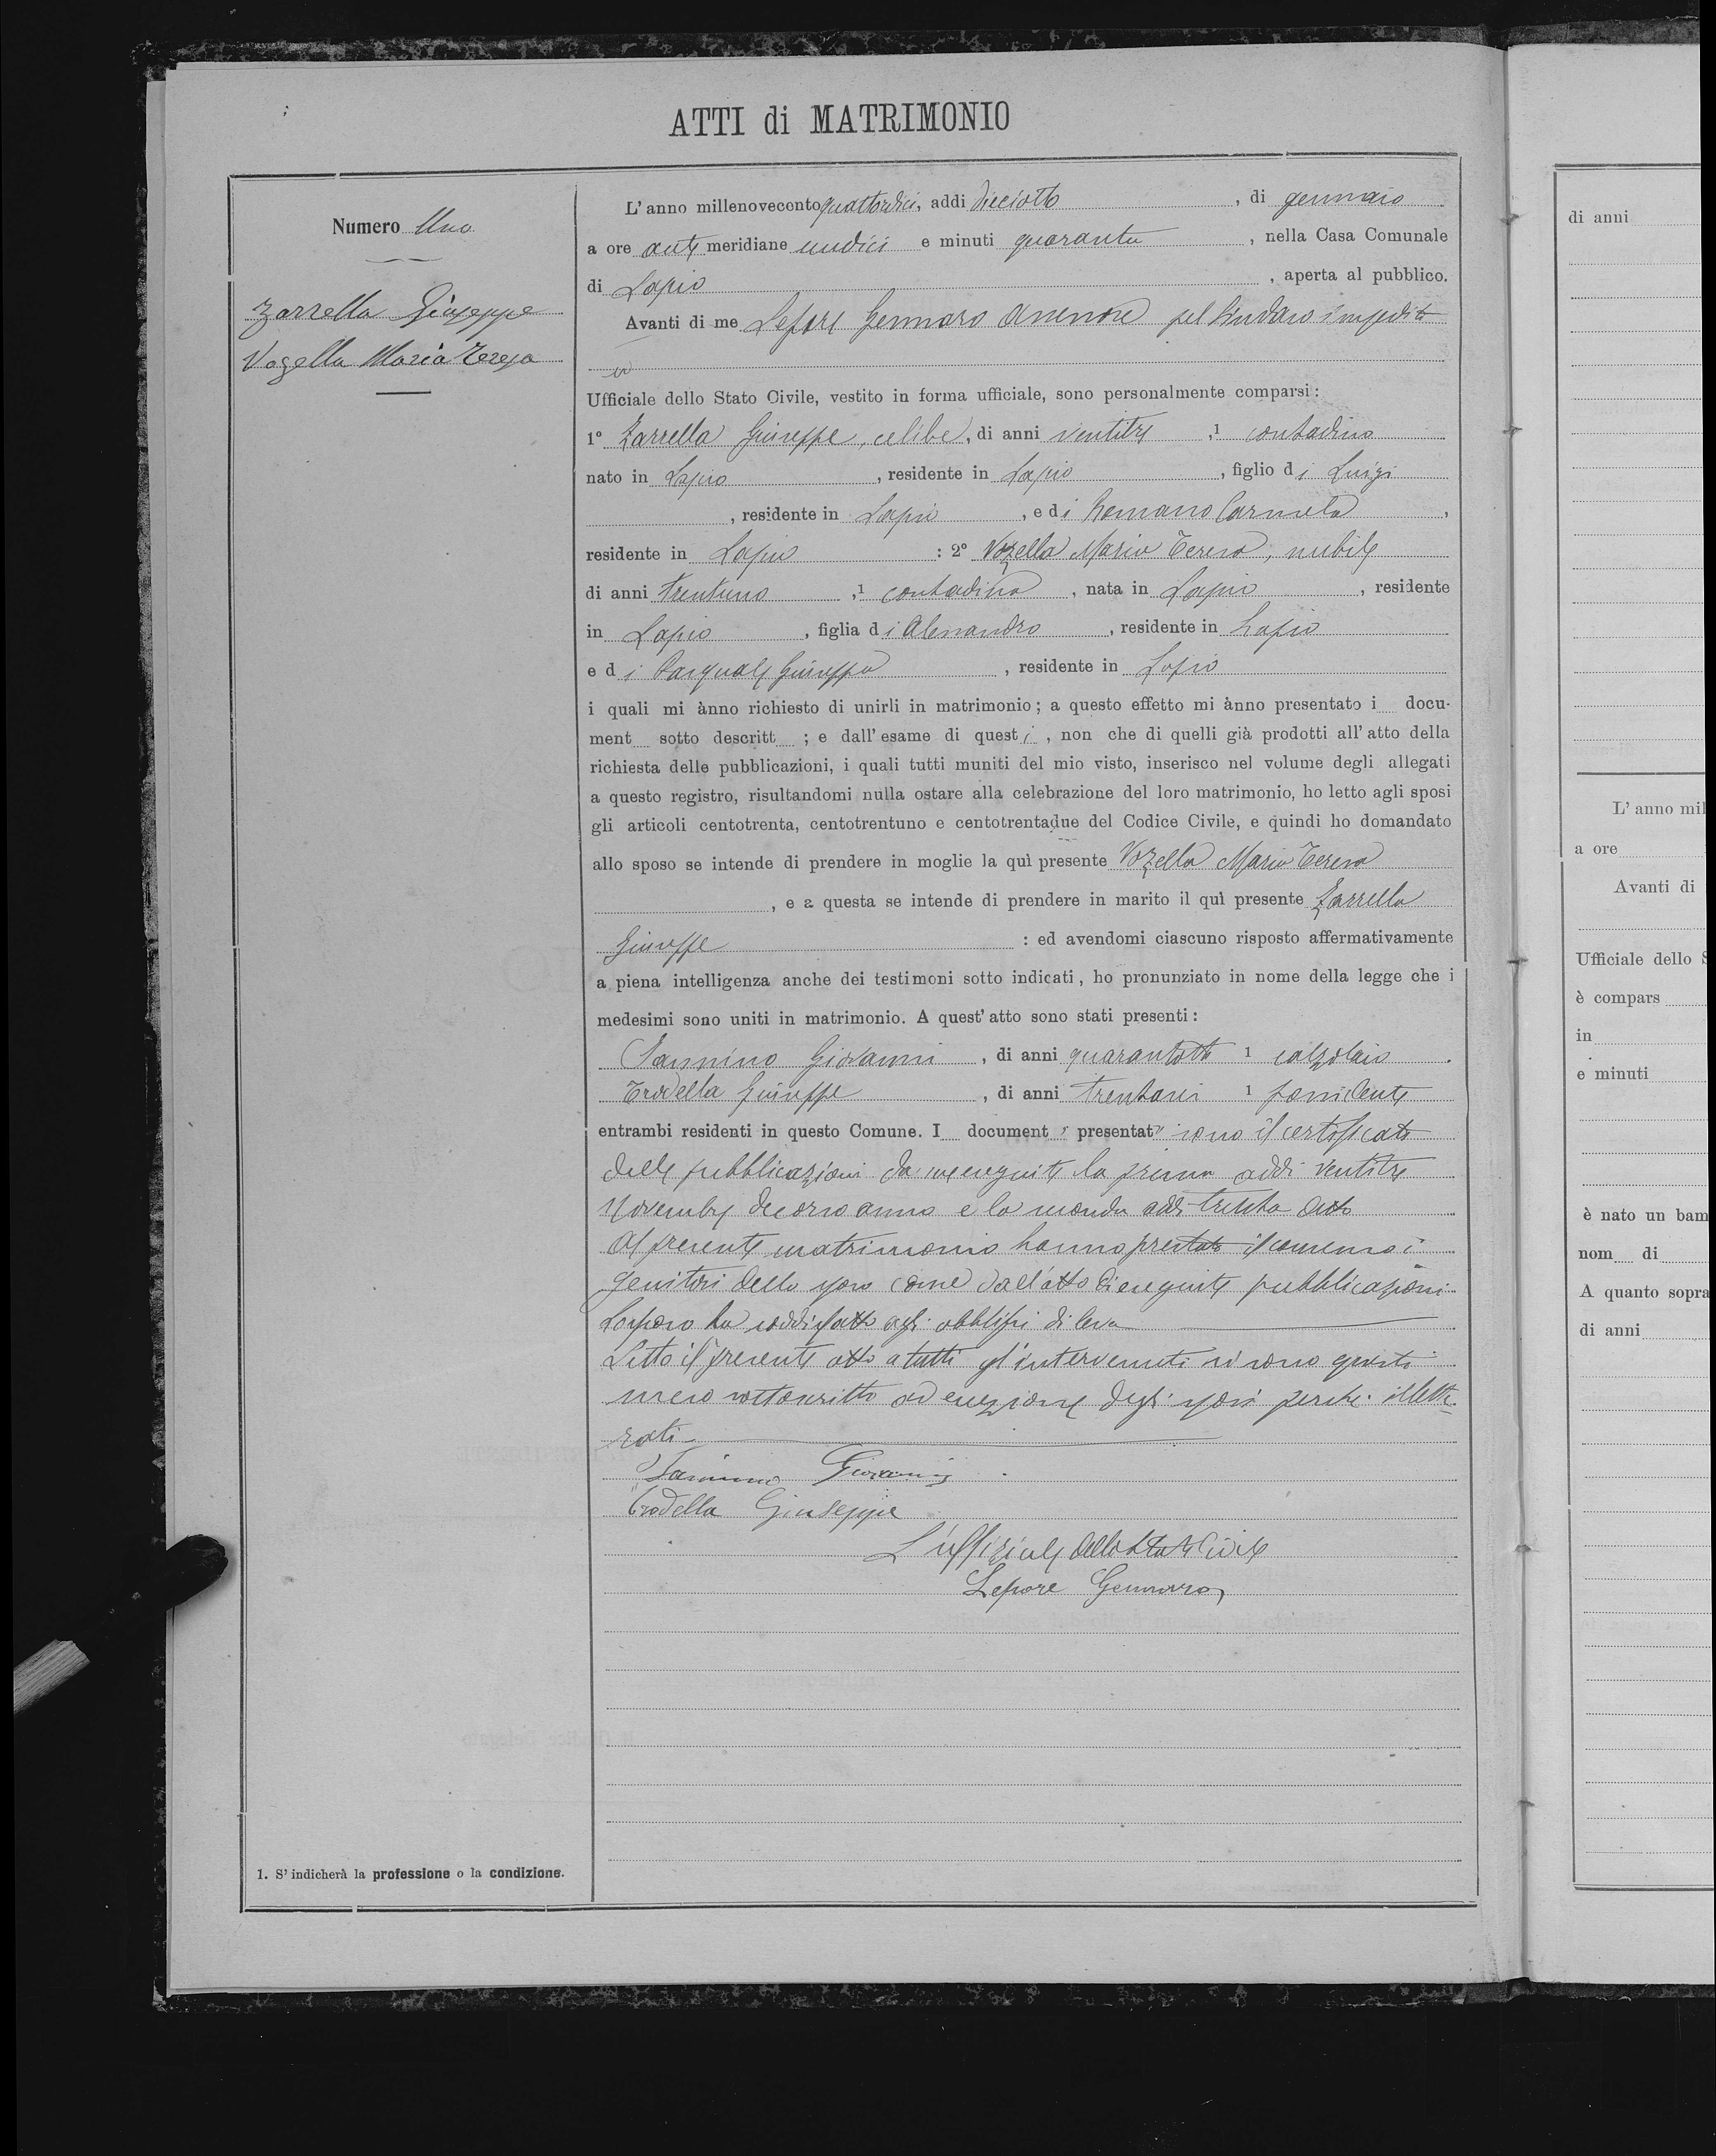 ATTI di MATRIMONIO
Numero Uno
Zarrella Giuseppe
Vozella Maria Teresa
1. S'indicherà la professione o la condizione.
L'anno millenovecento quattordici, addi dieciotto, di gennaio
a ore anti meridiane undici e minuti quaranta, nella Casa Comunale
di Lapio, aperta al pubblico.
Avanti di me Lepore Gennaro Assessore pel Sindaco impedito
Ufficiale dello Stato Civile, vestito in forma ufficiale, sono personalmente comparsi:
1º Zarrella Giuseppe, celibe, di anni ventitre, 1 contadino
nato in Lapio, residente in Lapio, figlio di Luigi
, residente in Lapio, e di Romano Carmela,
residente in Lapio : 2º Vozella Maria Teresa, nubile
di anni trentuno, 1 contadina, nata in Lapio, residente
in Lapio, figlia di Alessandro, residente in Lapio
e di Pasquale Giuseppa, residente in Lapio
i quali mi ànno richiesto di unirli in matrimonio; a questo effetto mi ànno presentato i docu-
ment sotto descritt ; e dall'esame di questi, non che di quelli già prodotti all'atto della
richiesta delle pubblicazioni, i quali tutti muniti del mio visto, inserisco nel volume degli allegati
a questo registro, risultandomi nulla ostare alla celebrazione del loro matrimonio, ho letto agli sposi
gli articoli centotrenta, centotrentuno e centotrentadue del Codice Civile, e quindi ho domandato
allo sposo se intende di prendere in moglie la quì presente Vozella Maria Teresa
, e a questa se intende di prendere in marito il quì presente Zarrella
Giuseppe : ed avendomi ciascuno risposto affermativamente
a piena intelligenza anche dei testimoni sotto indicati, ho pronunziato in nome della legge che i
medesimi sono uniti in matrimonio. A quest'atto sono stati presenti:
Iannino Giovanni, di anni quarantotto 1 calzolaio.
Trodella Giuseppe, di anni trentasei 1 possidente
entrambi residenti in questo Comune. I document i presentati sono il certificato
delle pubblicazioni da me eseguite la prima addi ventitre
Novembre decorso anno e la seconda addi trenta detto
Al presente matrimonio hanno prestato il consenso i
genitori dello sposo come dall'atto di eseguite pubblicazioni
Lo sposo ha soddisfatto agli obblighi di leva
Letto il presente atto a tutti gl'intervenuti si sono questi
meco sottoscritti ad eccezione degli sposi perché illette-
rati
Iannino Giovanni
Trodella Giuseppe
L'uffiziale dello Stato Civile
Lepore Gennaro
di anni
L'anno mil
a ore
Avanti di
Ufficiale dello S
è compars
in
e minuti
è nato un bam
nom di
A quanto sopra
di anni